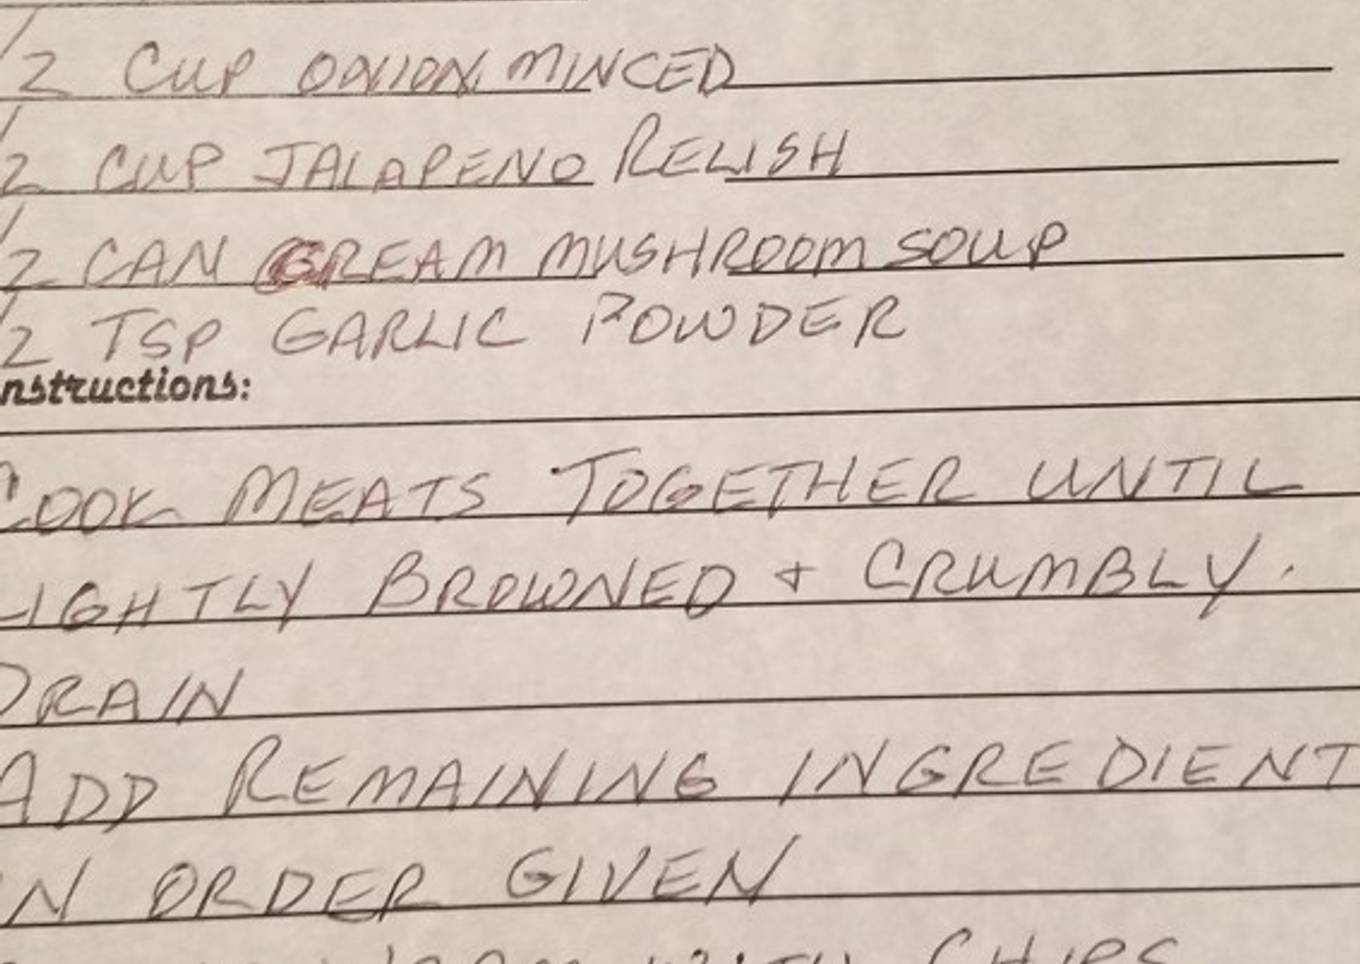 /2 CUP ONION, MINCED
/2 CUP JALAPENO RELISH
/2 CAN CREAM MUSHROOM SOUP
/2 TSP GARLIC POWDER
nstructions:
COOK MEATS TOGETHER UNTIL
LIGHTLY BROWNED + CRUMBLY.
DRAIN
ADD REMAINING INGREDIENT
N ORDER GIVEN
WITH CHIPS